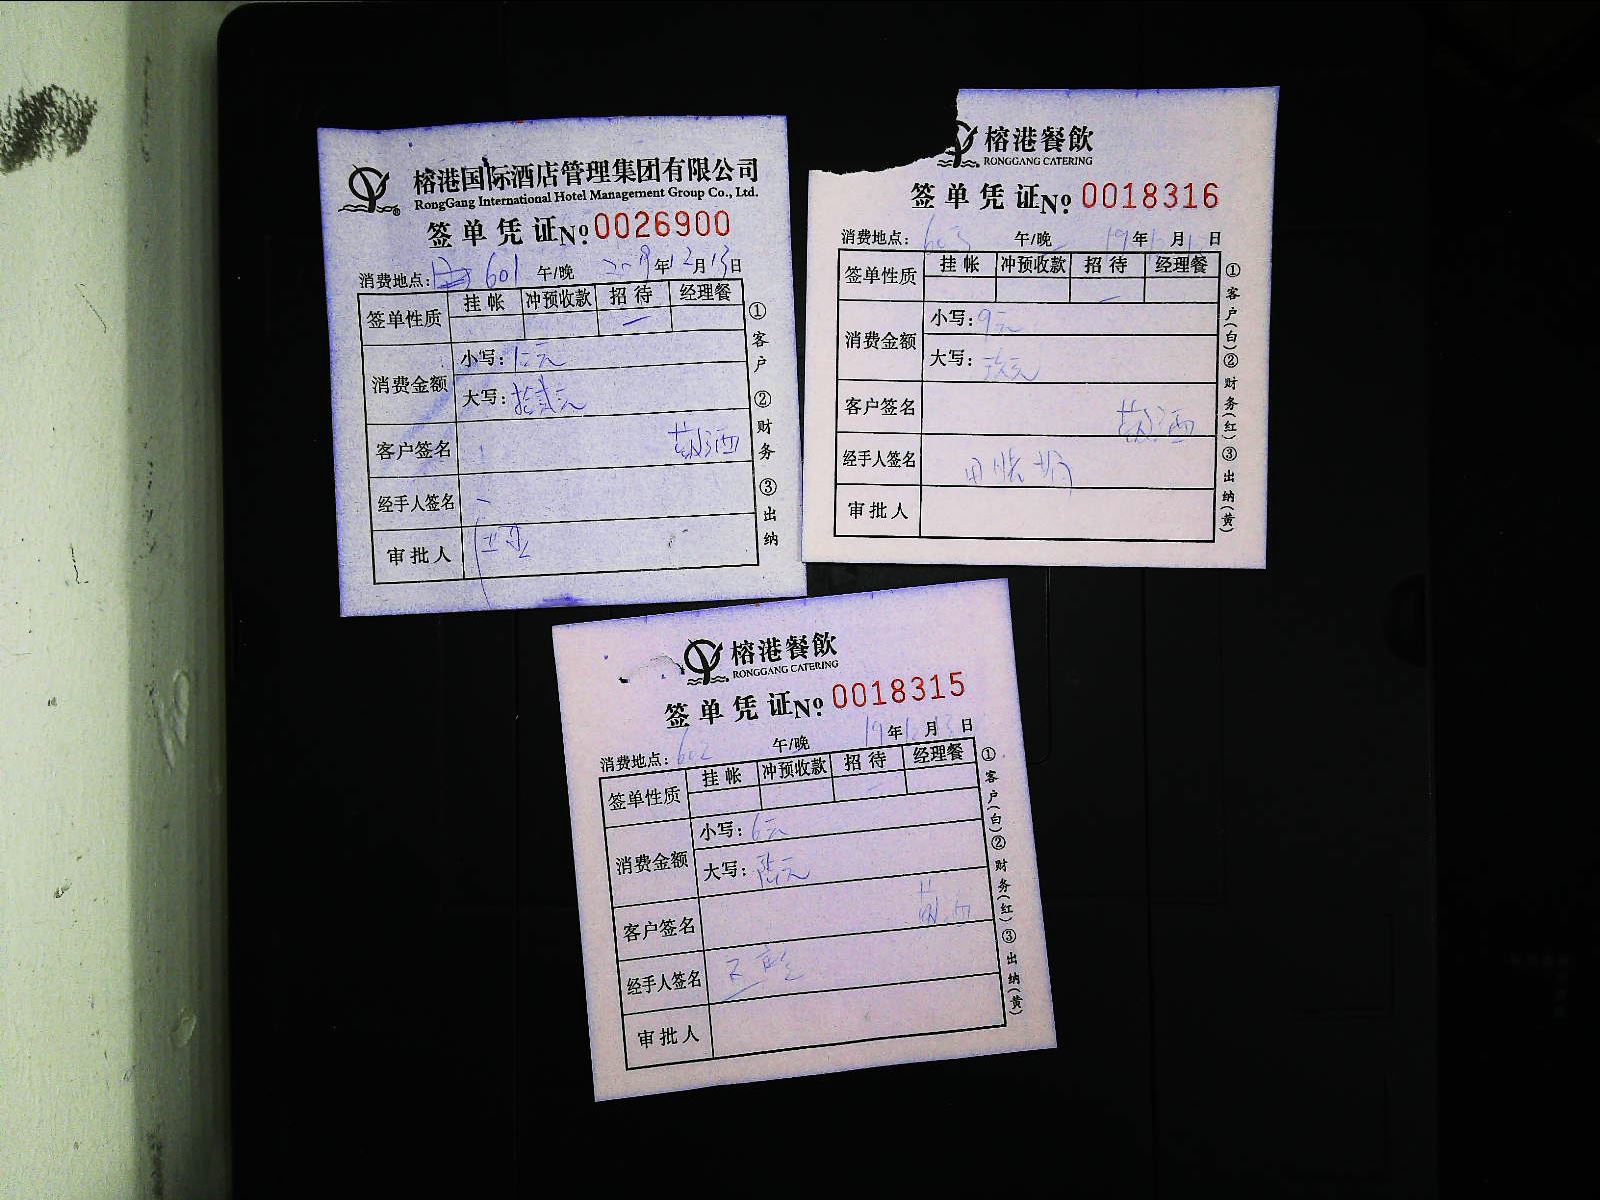 榕港国际酒店管理集团有限公司
RongGang International Hotel Management Group Co., Ltd.
签单凭证 №0026900
消费地点: 601 午/晚 2019年12月13日
签单性质 挂帐 冲预收款 招待 经理餐
消费金额 小写: 12元
大写: 拾贰元
客户签名
经手人签名
审批人
①客户 ②财务 ③出纳
榕港餐飲
RONGGANG CATERING
签单凭证 №0018316
消费地点: 603 午/晚 19年 月 日
签单性质 挂帐 冲预收款 招待 经理餐
消费金额 小写: 9元
大写: 玖元
客户签名
经手人签名
审批人
①客户(白)②财务(红)③出纳(黄)
榕港餐飲
RONGGANG CATERING
签单凭证 №0018315
消费地点: 602 午/晚 19年12月13日
签单性质 挂帐 冲预收款 招待 经理餐
消费金额 小写: 6元
大写: 陆元
客户签名
经手人签名
审批人
①客户(白)②财务(红)③出纳(黄)